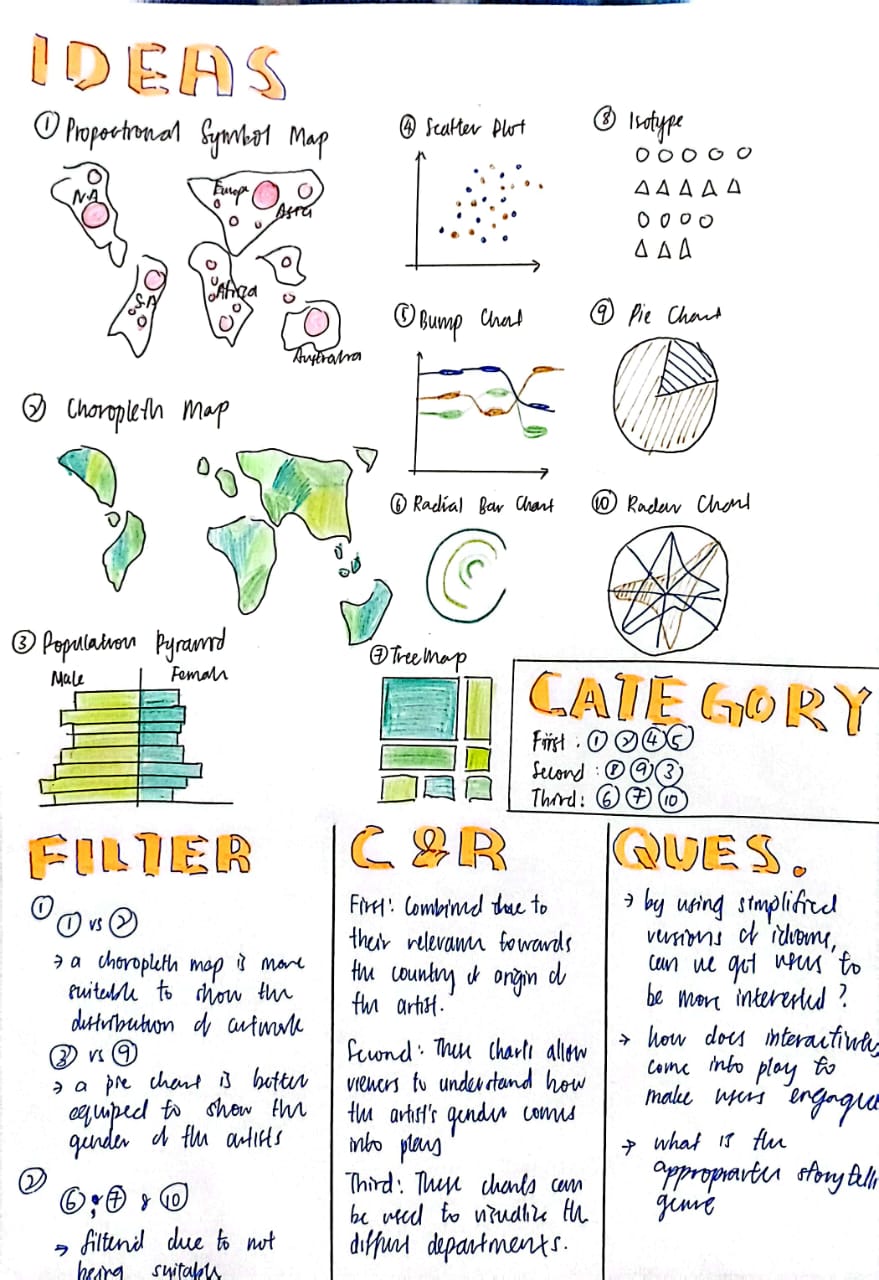 IDEAS
① Proportional Symbol Map
N.A
Europe
Asia
S.A
Africa
Australia
② Choropleth Map
③ Population Pyramid
Male Female
④ Scatter Plot
⑤ Bump Chart
⑥ Radial Bar Chart
⑦ TreeMap
⑧ Isotype
⑨ Pie Chart
⑩ Radar Chart
CATEGORY
First : ① ② ④ ⑤
Second : ⑧ ⑨ ③
Third : ⑥ ⑦ ⑩
FILTER
①
① vs ②
→ a choropleth map is more
suitable to show the
distribution of artwork
③ vs ⑨
→ a pie chart is better
equiped to show the
gender of the artists
②
⑥, ⑦ & ⑩
→ filtered due to not
being suitable
C & R
First: Combined due to
their relevance towards
the country of origin of
the artist.
Second: These charts allow
viewers to understand how
the artist's gender comes
into play
Third: These charts can
be used to visualize the
different departments.
QUES.
→ by using simplified
versions of idioms,
can we get users to
be more interested?
→ how does
come into play to
make users
→ what is the
genre